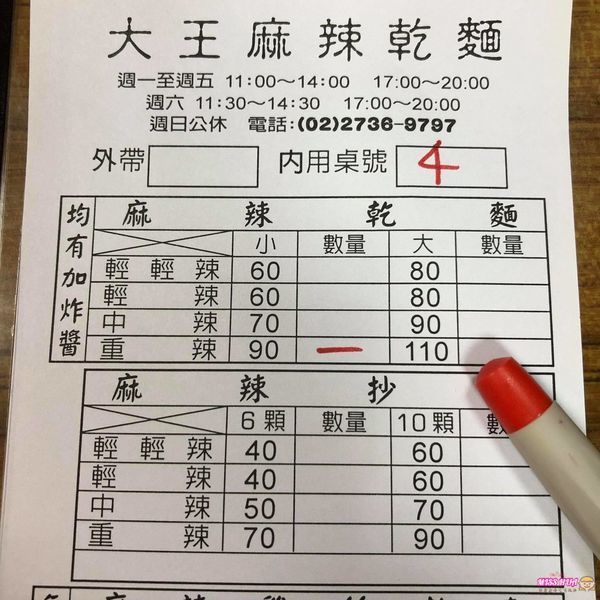 大王麻辣乾麵
週一至週五 11:00～14:00 17:00～20:00
週六 11:30～14:30 17:00～20:00
週日公休 電話:(02)2736-9797
外帶 內用桌號 4
均有加炸醬
麻辣乾麵
小 數量 大 數量
輕輕辣 60 80
輕辣 60 80
中辣 70 90
重辣 90 一 110
麻辣抄
6顆 數量 10顆 數
輕輕辣 40 60
輕辣 40 60
中辣 50 70
重辣 70 90
麻辣
MISS